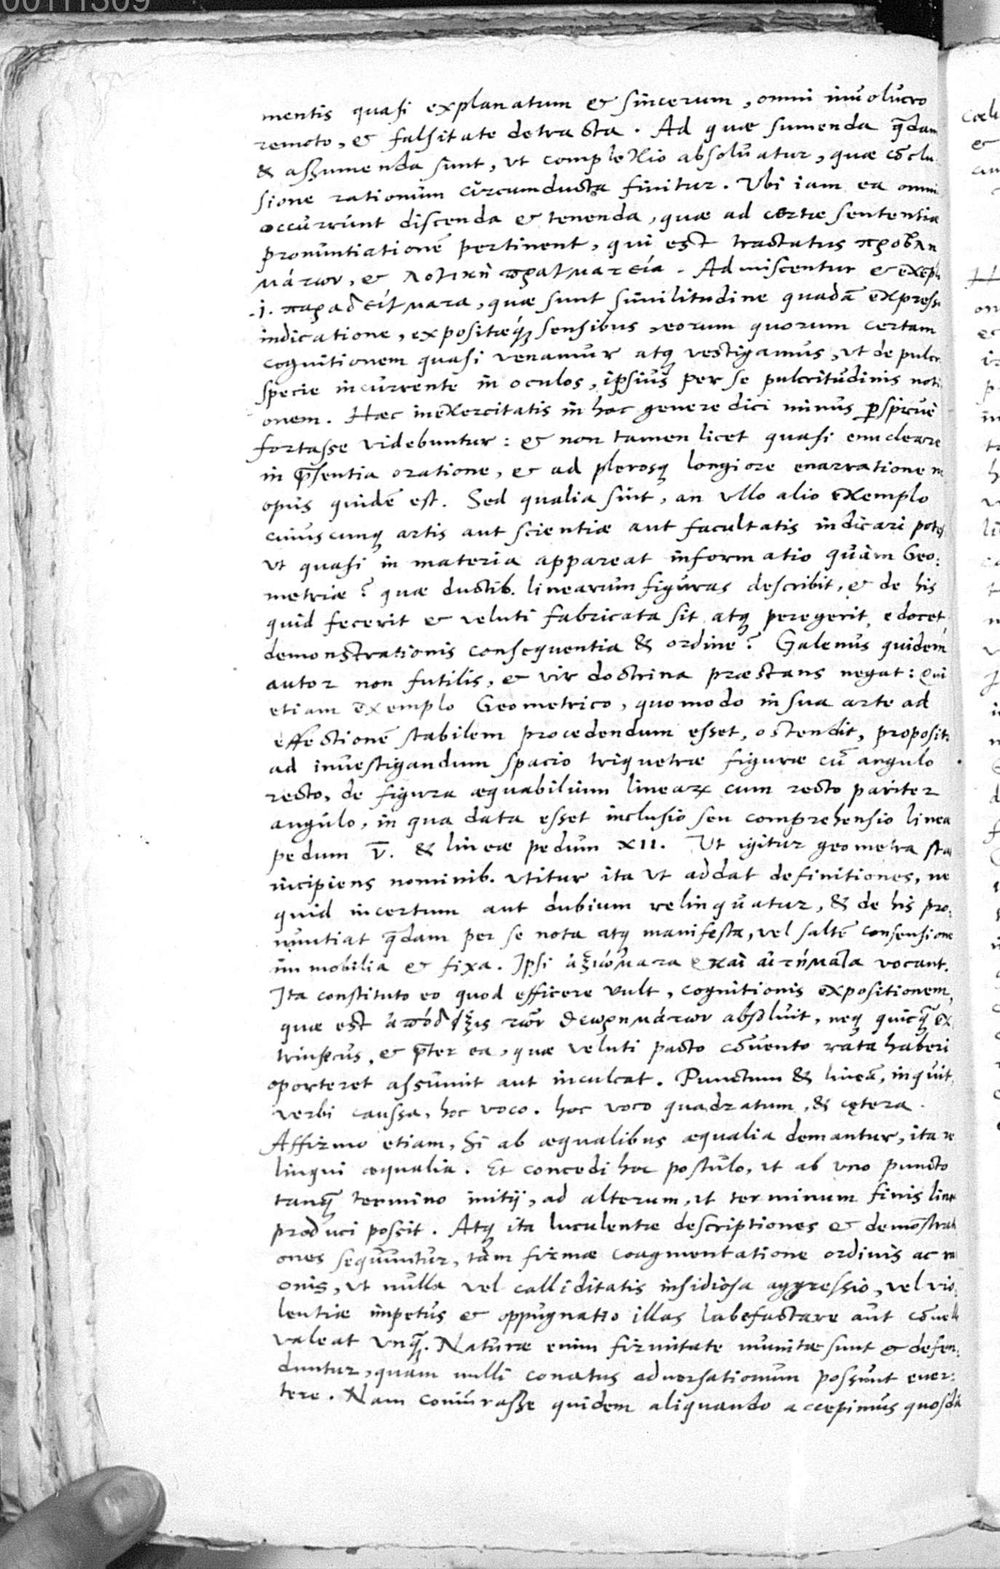 00111309
mentis quasi explanatum & sincerum, omni involucro
remoto, & falsitate detracta. Ad quæ sumenda q̄dam
& assumenda sunt, ut complexio absolvatur, quæ cōclu-
sione rationum circumducta finitur. Ubi iam ea omni
occurrunt discenda & tenenda, quæ ad certæ sententiæ
pronuntiationē pertinent, qui est tractatus προβλη
μάτων, & λογικὴ πραγματεία. Admiscentur & exēpla
.i. παραδείγματα, quæ sunt similitudine quadā expressa
indicatione, expositæq; sensibus, eorum quorum certam
cognitionem quasi venamur atq; vestigamus, ut de pulcr
specie incurrente in oculos, ipsius per se pulcritudinis noti
onem. Hæc inexercitatis in hoc genere dici minus p̱spicuè
fortasse videbuntur: & non tamen licet quasi enucleare
in p̄sentia oratione, & ad plerosq; longiore enarratione
opus quidē est. Sed qualia sint, an ullo alio exemplo
cuiuscunq; artis aut scientiæ aut facultatis indicari potest
ut quasi in materia appareat informatio quàm Geo:
metriæ? quæ ductib. linearum figuras describit, & de his
quid fecerit & veluti fabricata sit atq; peregerit, edocet
demonstrationis consequentia & ordine? Galenus quidem
autor non futilis, & vir doctrina præstans negat: Qui
etiam exemplo Geometrico, quomodo in sua arte ad
effectionē stabilem procedendum esset, ostendit, propositi
ad investigandum spacio triquetræ figuræ cū angulo
recto, de figura æquabilium linearꝝ cum recto pariter
angulo, in qua data esset inclusio seu comprehensio linea
pedum V. & lineæ pedum XII. Ut igitur geometra sta
incipiens nominib. utitur ita ut addat definitiones, ne
quid incertum aut dubium relinquatur, & de his pro:
nuntiat q̄dam per se nota atq; manifesta, vel saltē consensione
immobilia & fixa. Ipsi ἀξιώματα & καὶ αἰτήματα vocant.
Ita constituto eo quod efficere vult, cognitionis expositionem,
quæ est ἀπόδειξις τῶν θεωρημάτων absoluit, neq; quicq̄ ex
trinsecus, & p̄ter ea, quæ veluti pacto cōvento rata haberi
oporteret assumit aut inculcat. Punctum & lineā, inquit
verbi caussa, hoc voco. hoc voco quadratum, & cętera.
Affirmo etiam, Si ab æqualibus æqualia demantur, ita re
linqui æqualia. Et concedi hoc postulo, ut ab uno puncto
tanq̄ termino initij, ad alterum, ut terminum finis line
produci possit. Atq; ita luculentæ descriptiones & demōstrati
ones sequuntur, tam firmæ coagmentatione ordinis ac
onis, ut nulla vel calliditatis insidiosa aggressio, vel vio:
lentiæ impetus & oppugnatio illas labefactare aut cōvell
valeat unq̄. Naturæ enim firmitate munitæ sunt & defen:
duntur, quam nulli conatus adversationum possunt ever:
tere. Nam coniurasse quidem aliquando accepimus quosdā